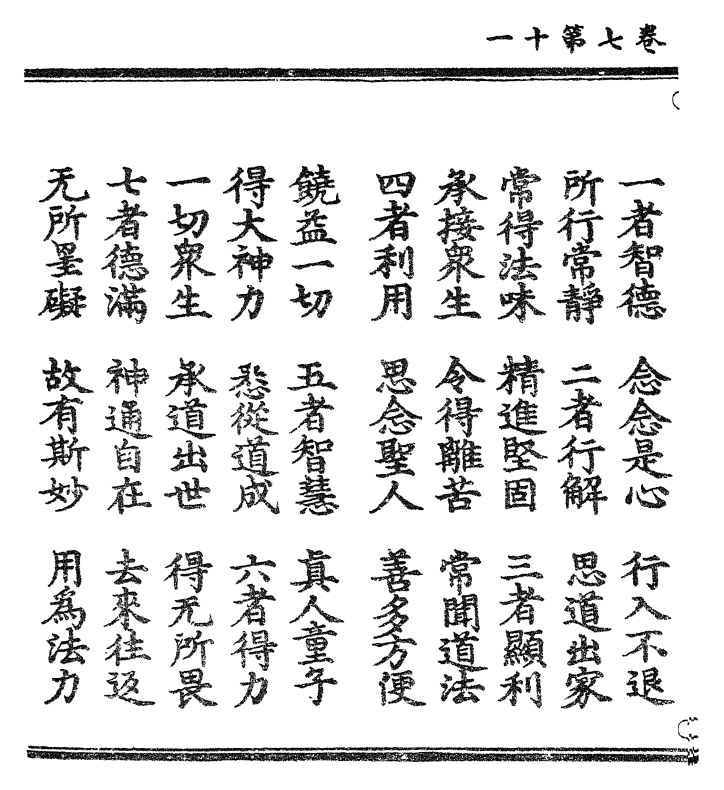 卷七第十一
一者智德　念念是心　行入不退
所行常靜　二者行解　思道出家
常得法味　精進堅固　三者顯利
承接衆生　令得離苦　常聞道法
四者利用　思念聖人　善多方便
饒益一切　五者智慧　真人童子
得大神力　悉從道成　六者得力
一切衆生　承道出世　得无所畏
七者德滿　神通自在　去來往返
无所罣礙　故有斯妙　用為法力